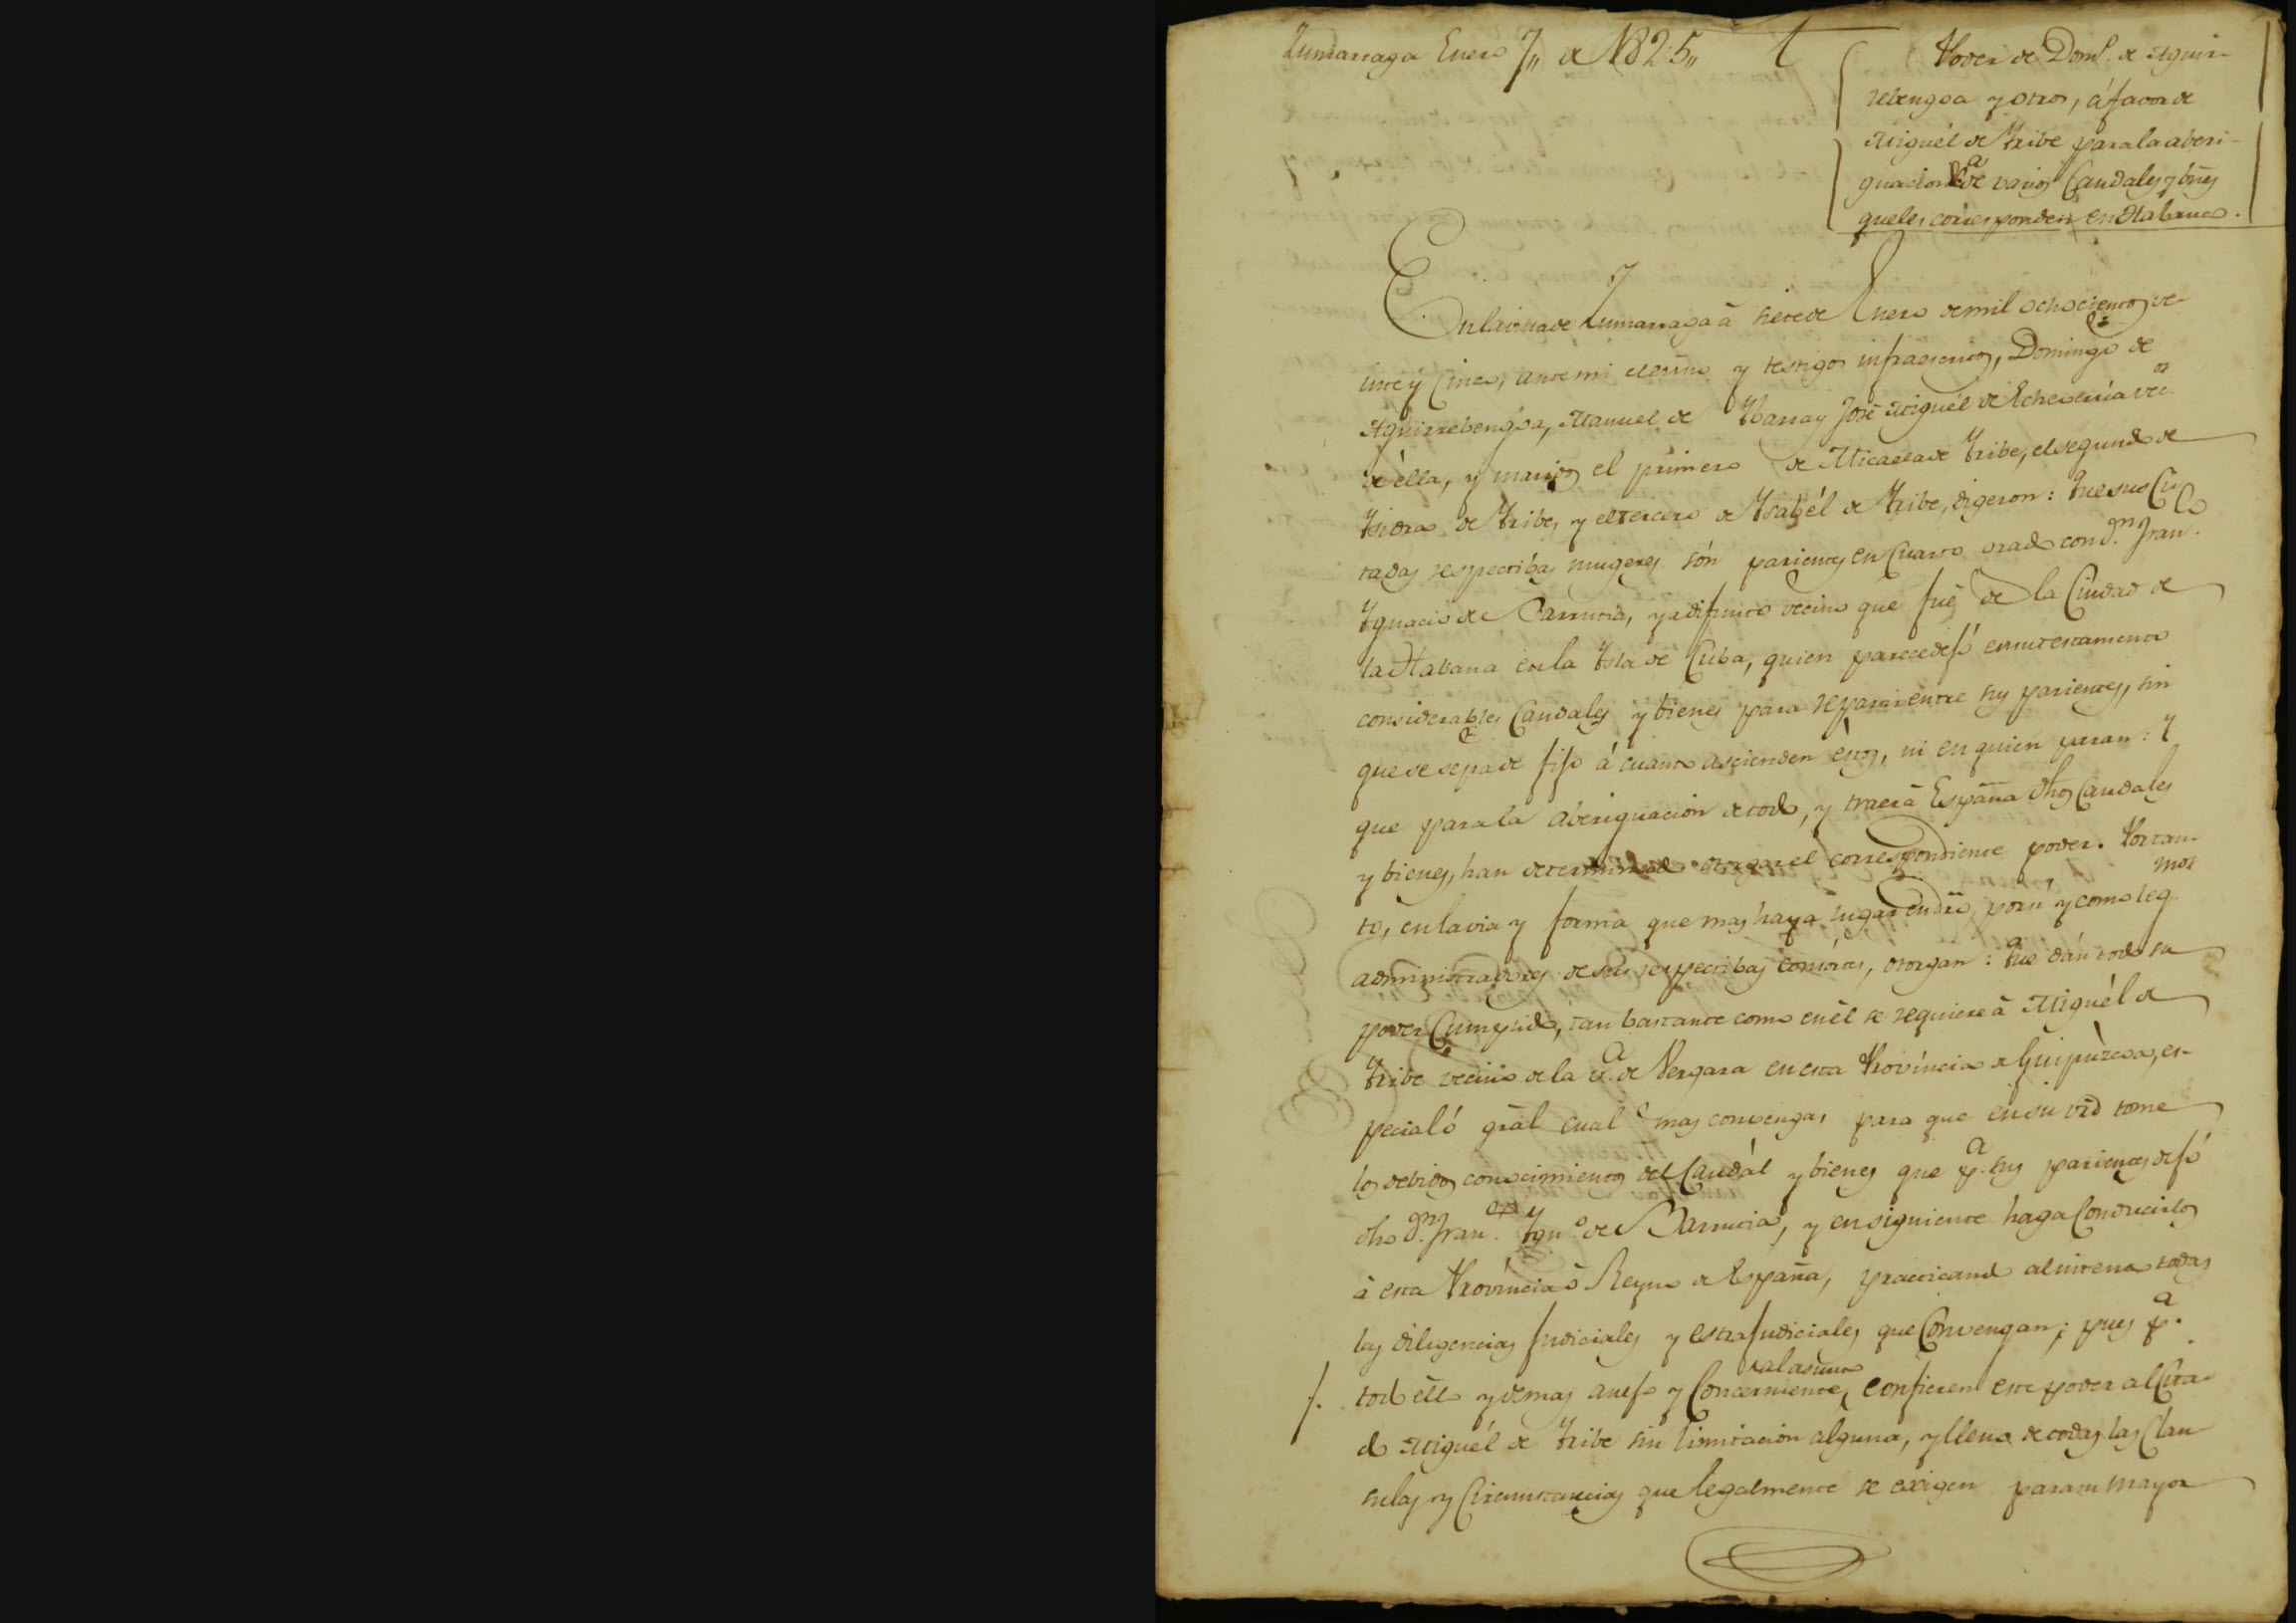 Zumarraga Enero 7,, de 1825,,
Poder de Dom.º de Aguir-
rebengoa y otros, á favor de
Miguél de Yribe para la aberi-
guacion de varios Caudales y bñs
que les corresponden en Habana.
En la villa de Zumarraga à siete de Enero de mil ochocientos ve-
inte y Cinco, ante mi el essno y testigos infraescritos, Domingo de
Aguirrebengoa, Manuel de Ybarra y José Miguél de Echeverria vec.os
de élla, y maridos el primero de Micaela de Yribe, el segundo de
Ysidra de Yribe, y el tercero de Ysabél de Yribe, digeron: Que sus Ci-
tadas respectibas mugeres són parientes en Cuarto grado con d.n Fran.co
Ygnacio de Barrutia, ya difunto vecino que fué de la Ciudad de
la Habana en la Ysla de Cuba, quien parece dejó en su testamento
considerables Caudales y bienes para repartir entre sus parientes, sin
que se sepa de fijo á cuanto ascienden éstos, ni en quien paran: Y
que para la aberiguacion de todo, y traer à España dhos Caudales
y bienes, han determinado otorgar el correspondiente poder. Por tan-
to, en la via y forma que mas haya lugar en dro, por si y como leg.mos
administradores de sus respectibas consortes, otorgan: Que dán todo su
poder Cumplido, tan bastante como en él se requiere à Miguél de
Yribe vecino de la v.a de Vergara en esta Provincia de Guipùzcoa, es-
pecial ó grâl cual mas convenga, para que en su vrd tome
los debidos conocimientos del Caudál y bienes que p.a sus parientes dejó
dho d.n Fran.co Ygn.o de Barrutia, y en siguiente haga Conducirlos
à esta Provincia ò Reyno de España, practicando al intento todas
las diligencias judiciales y estrajudiciales que Convengan; pues p.a
todo éllo y demas anejo y Concerniente al asunto, confieren este poder al Cita-
do Miguél de Yribe sin limitacion alguna, y lleno de todas las Clau
sulas y Circunstancias que legalmente se exigen para su mayor